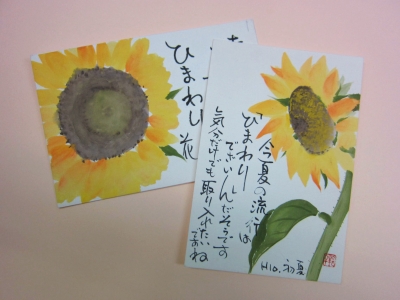 ひまわり
花
今夏の流行は
ひまわり
でホいんだそうです
気分だけでも取り入れたい
ですね
H10. 初夏